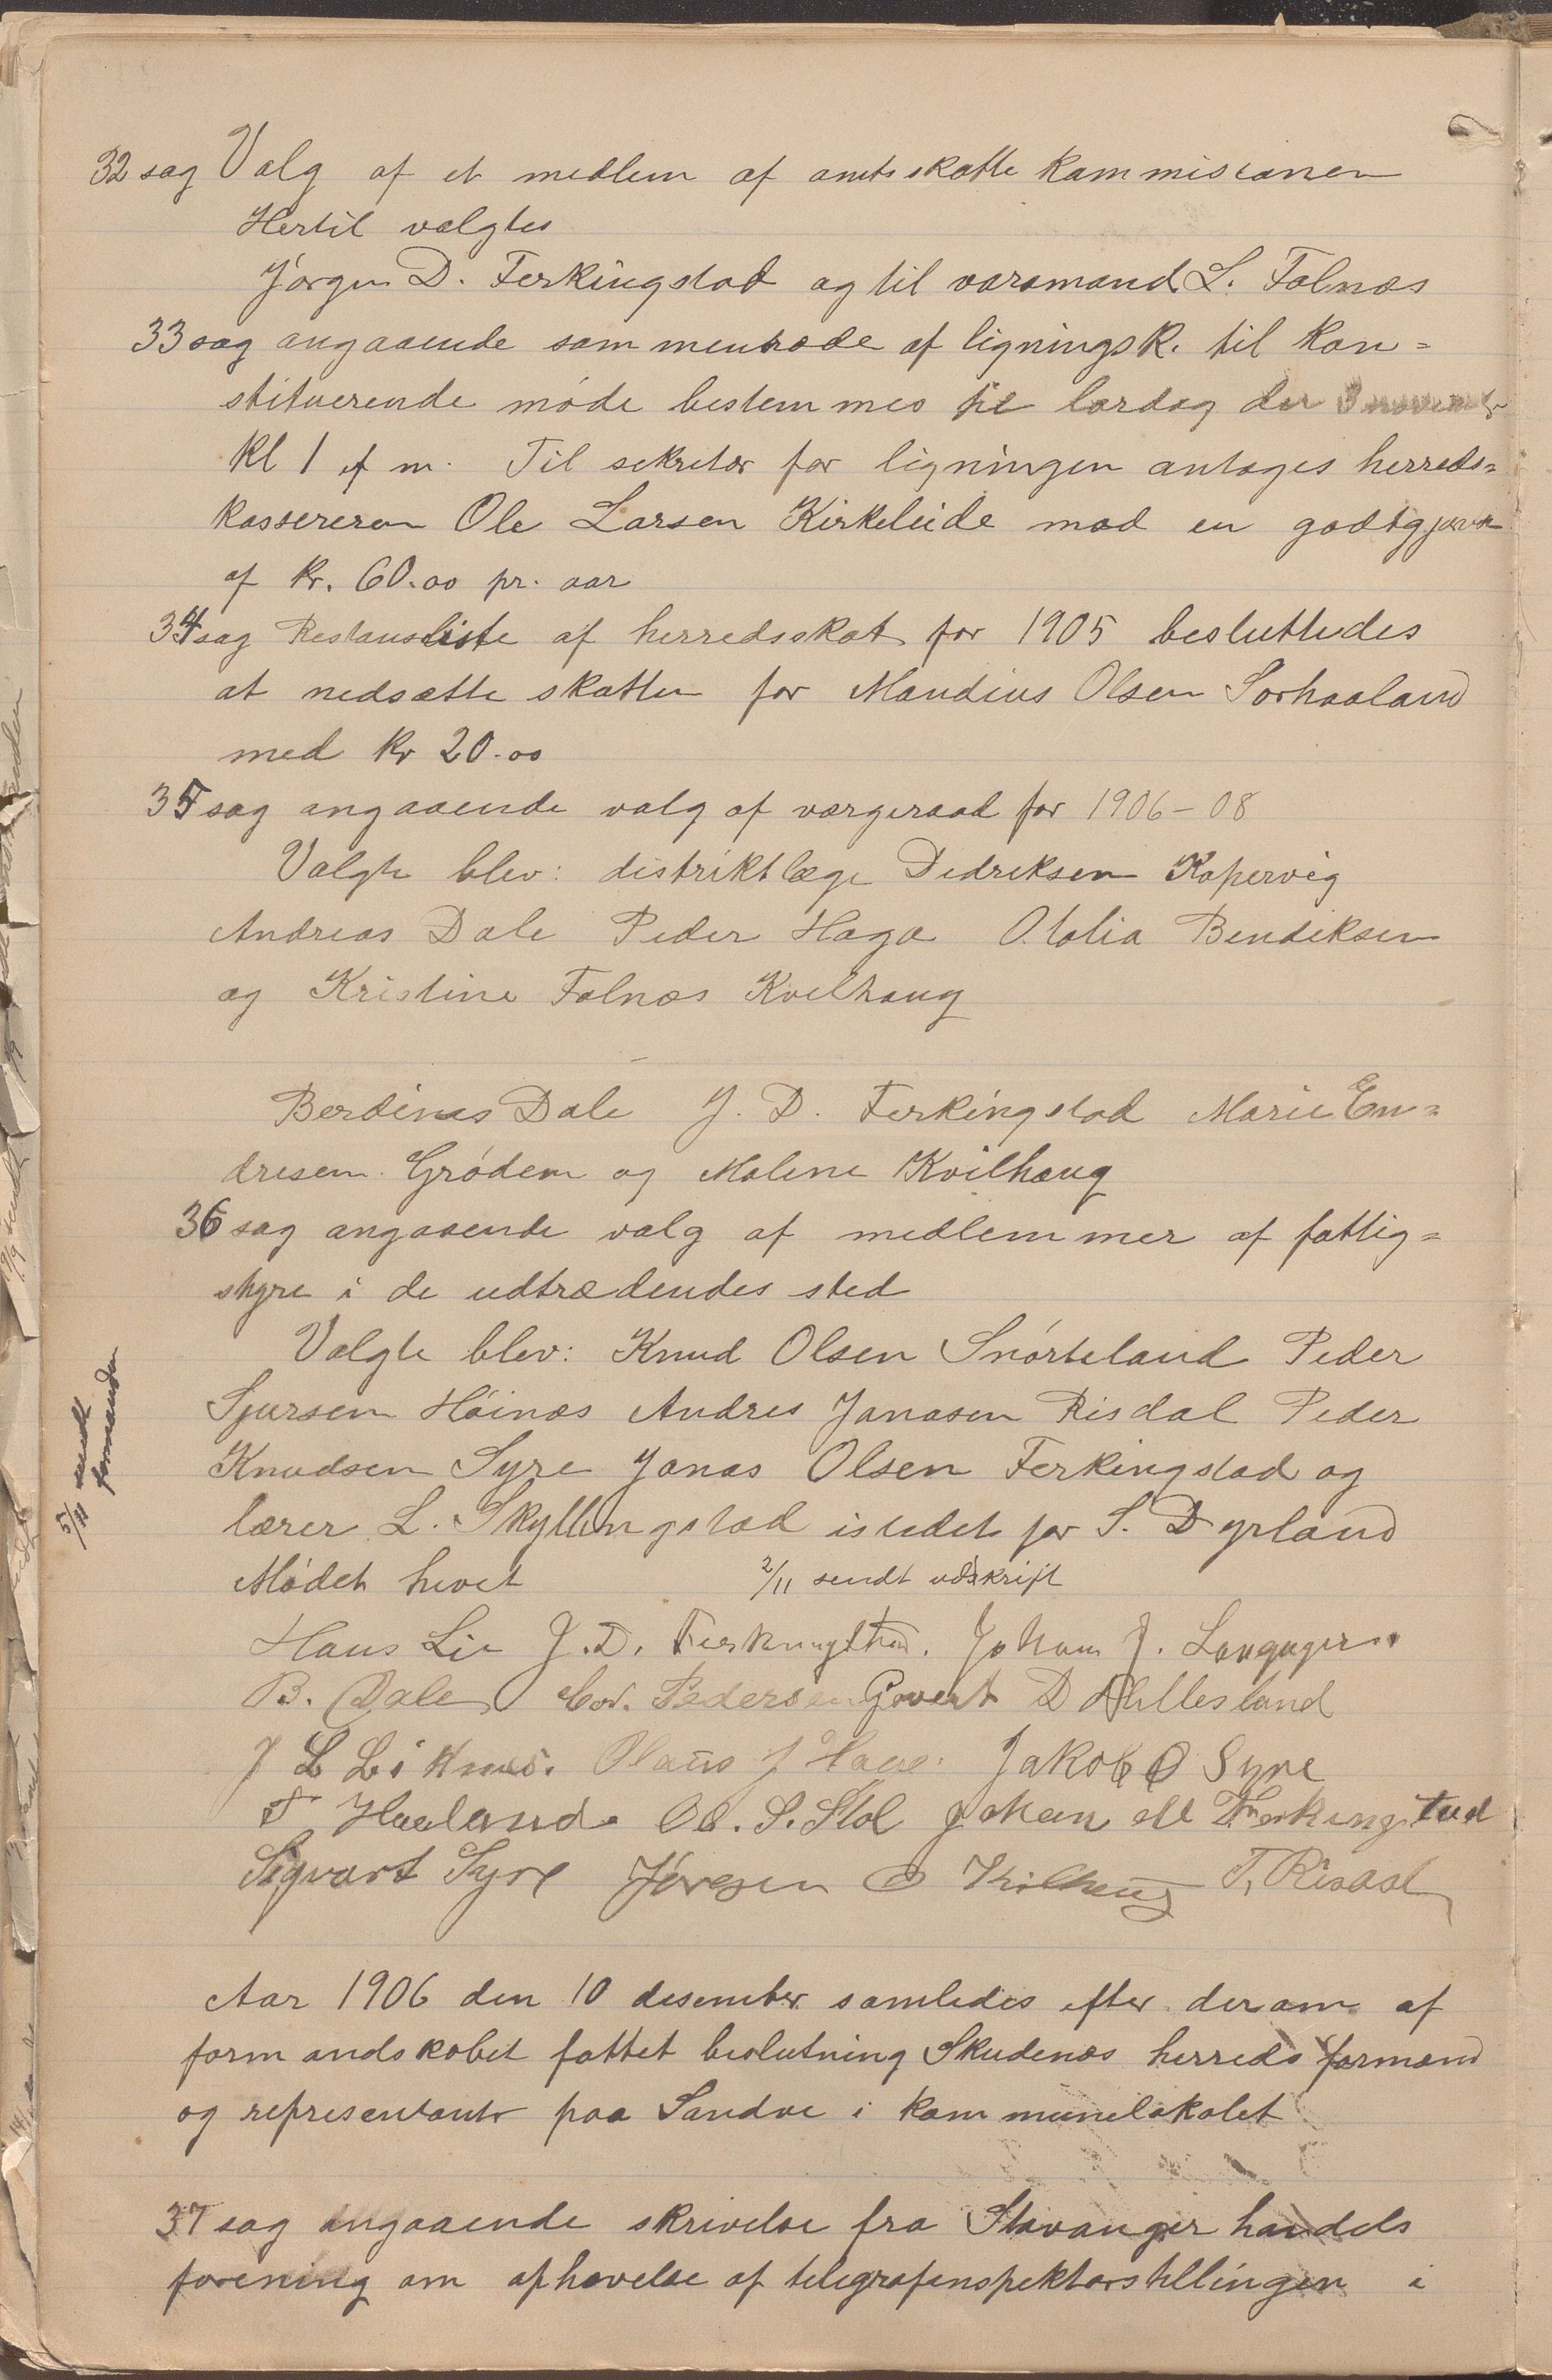 32 sag Valg af et medlem af amtsskatte kommisionen
Hertil valgtes
Jørgen D. Ferkingstad og til varamand L. Falnæs
33 sag angaaende sammentræde af ligningsk. til kon=
stituerende møde bestemmes til lørdag der 3 november
kl 1 ef m. Til sekretær for ligningen antages herreds=
kassereren Ole Larsen Kirkeleide mod en godtgjørelse
af kr. 60.00 pr. aar
34 sag Restansliste af herredsskat for 1905 besluttedes
at nedsætte skatten for Mandius Olsen Sørhaaland
med kr 20.00
35 sag angaaende valg af værgeraad for 1906-08
Valgte blev: distriktlæge Dedreksen Kopervig
Andreas Dale Peder Haga Otolia Bendiksen
og Kristine Falnæs Kvilhaug
Berdines Dale J. D. Ferkingstad Marie En=
dresen Grødem og Malene Kvilhaug
36 sag angaaende valg af medlemmer af fattig=
styre i de udtrædendes sted
Valgte blev: Knud Olsen Snørteland Peder
Sjursen Høinæs Andres Jonasen Risdal Peder
Knudsen Syre Jonas Olsen Ferkingstad og
lærer L. Skyllingstad istedet for S. Dyrland
5/11 sendt formanden
Mødet hevet 2/11 sendt udskrift
Hans Lie J. D. Ferkingstad. Johan J. Langager
B. Dale Pedersen Govert D Hillesland
J L Liknes. Olaus J Hage. Jakob O Syre
T Haaland. Ol. S. Stol Johan M Ferkingstad
Sigvart Syre Jørgen O Kvilhaug T, Risdal
Aar 1906 den 10 desember samledes efter derom af
formandskabet fattet beslutning Skudenæs herreds formænd
og representantr paa Sandve i kommunelokalet
37 sag angaaende skrivelse fra Stavanger handels
forening om ophævelse af telegrafinspektørstillingen i